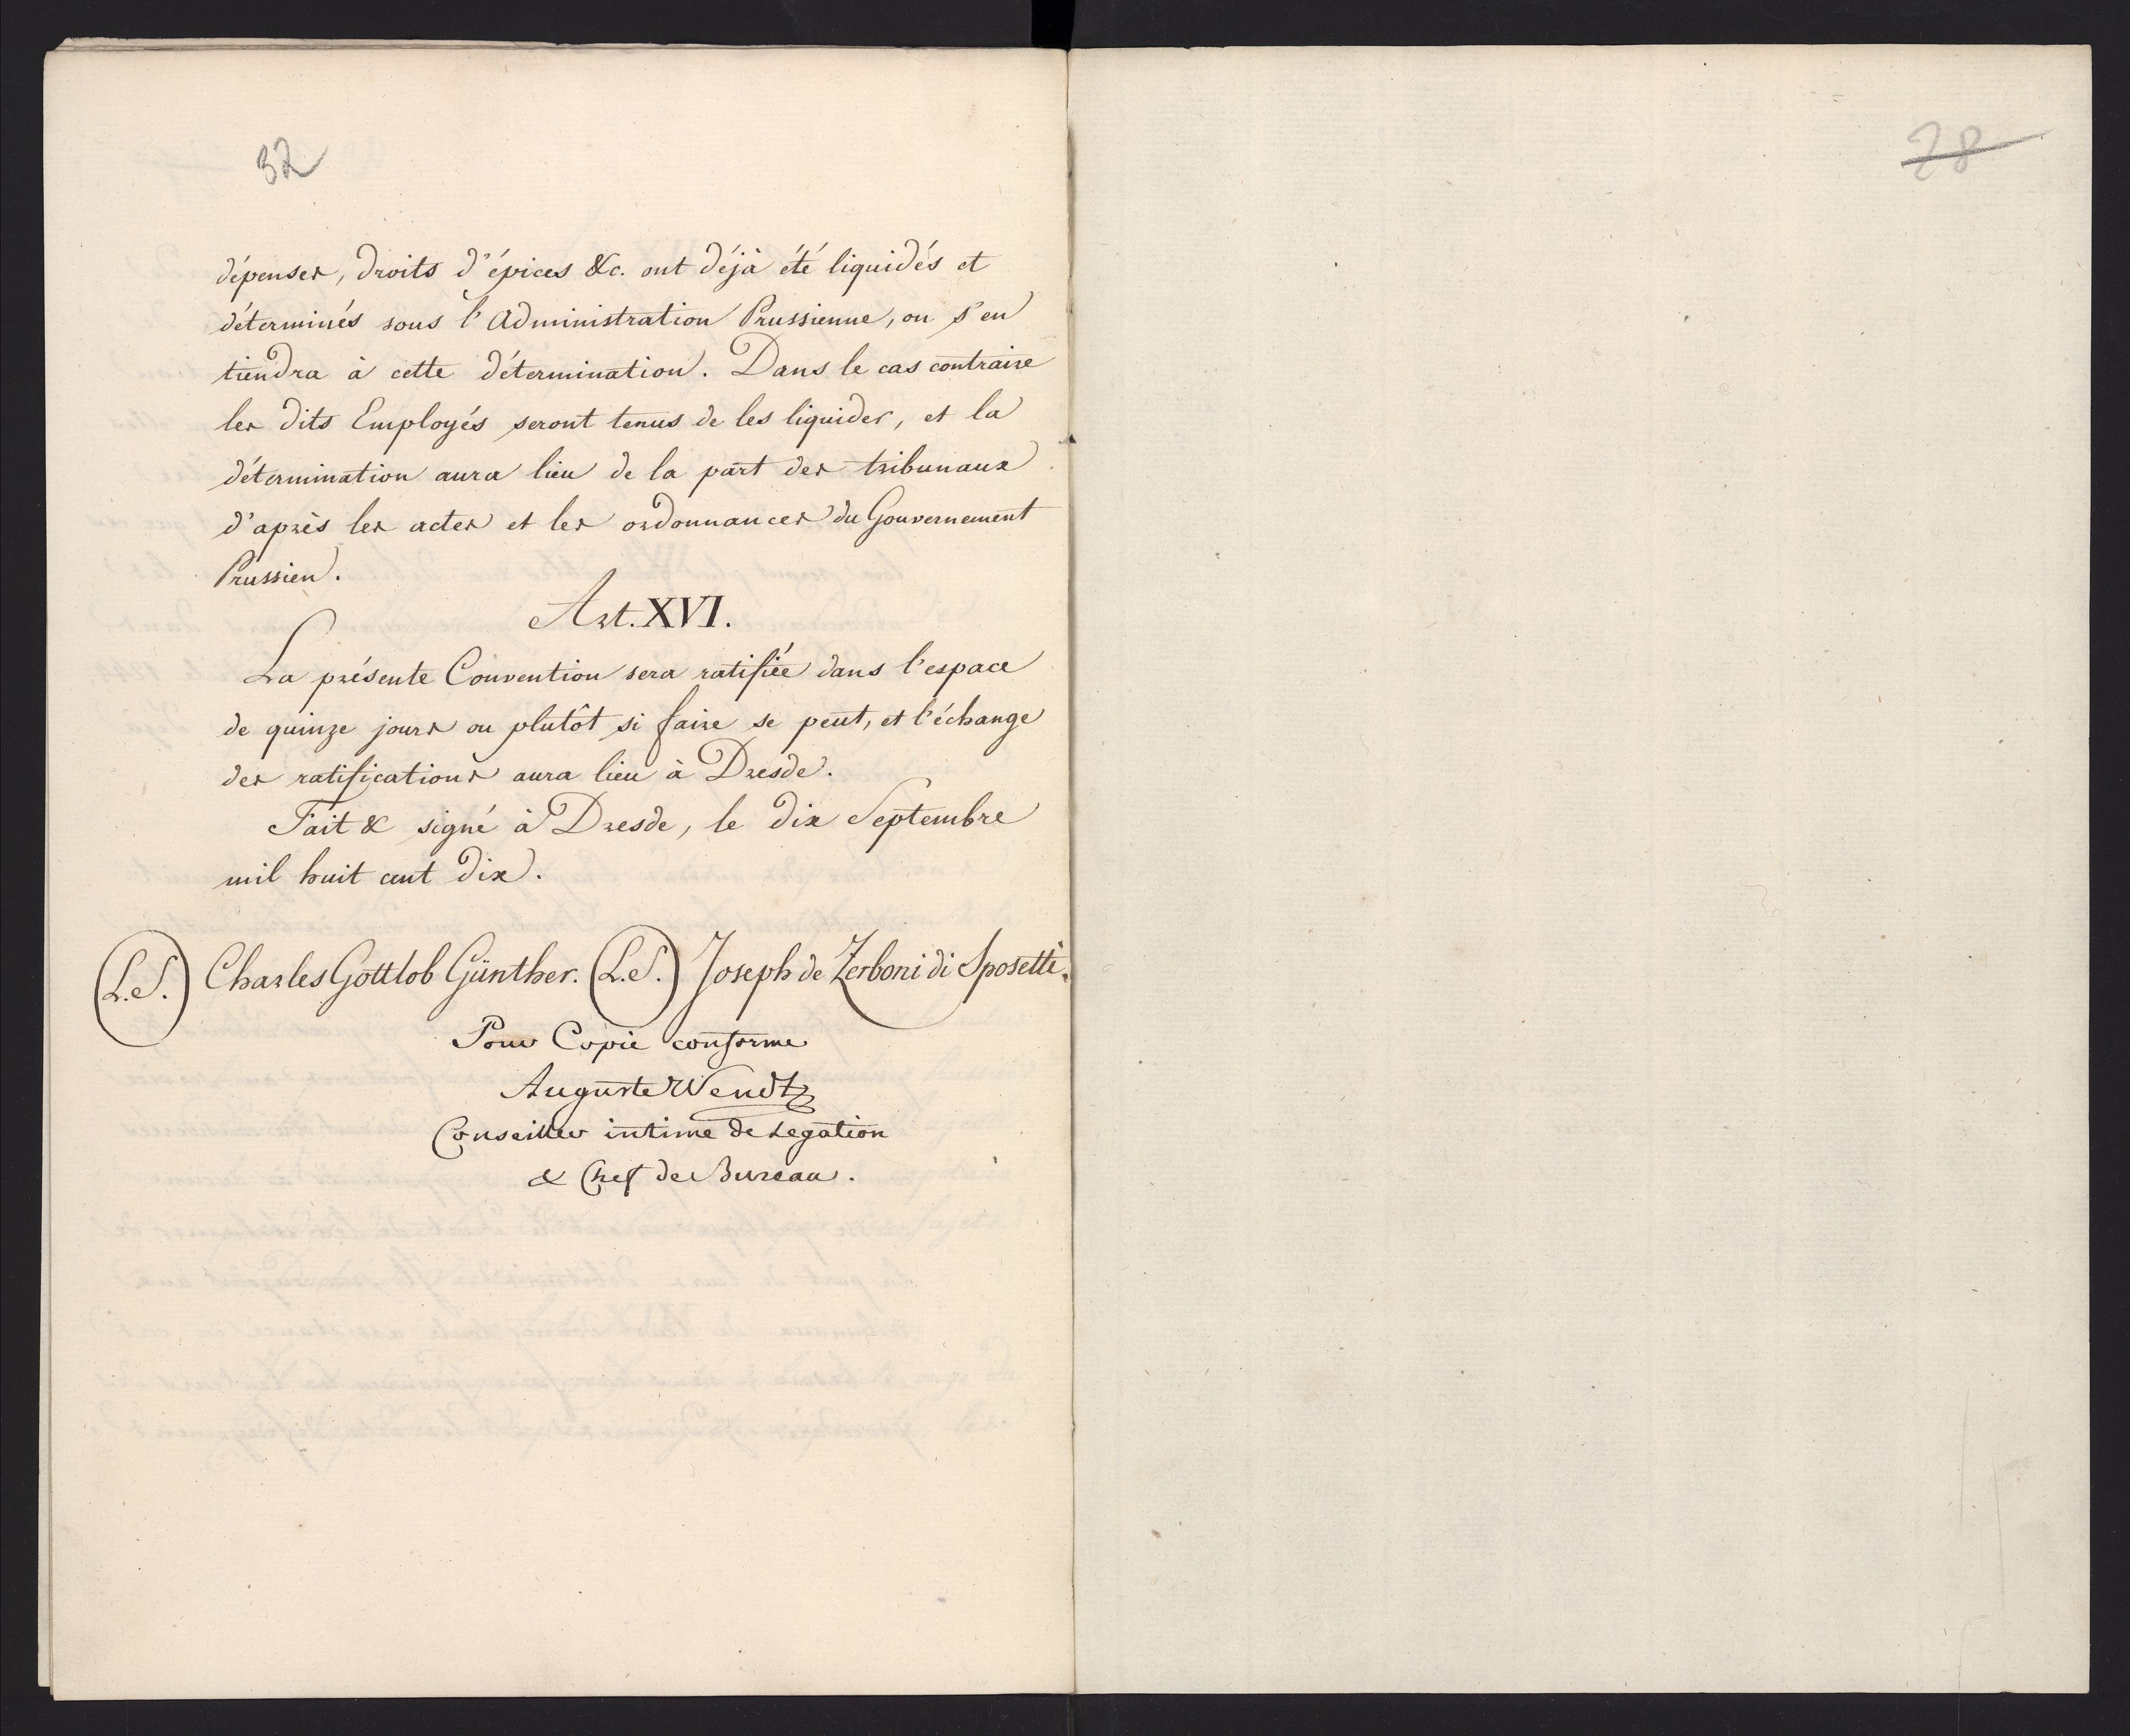 32
dépenses, droits d'épices &c. ont déjà été liquidés et
déterminés sous l'Administration Prussienne, on s'en
tiendra à cette détermination. Dans le cas contraire
les dits Employés seront tenus de les liquider, et la
détermination aura lieu de la part des tribunaux
d'après les actes et les ordonnances du Gouvernement
Prussien.
Art. XVI.
La présente Convention sera ratifiée dans l'espace
de quinze jours ou plutôt si faire se peut, et l'échange
des ratifications aura lieu à Dresde.
Fait & signé à Dresde, le dix Septembre
mil huit cent dix.
(L.S.) Charles Gottlob Günther. (L.S.) Joseph de Zerboni di Sposetti.
Pour Copie conforme
Auguste Wendt
Conseiller intime de Legation
& Chef de Bureau.
28